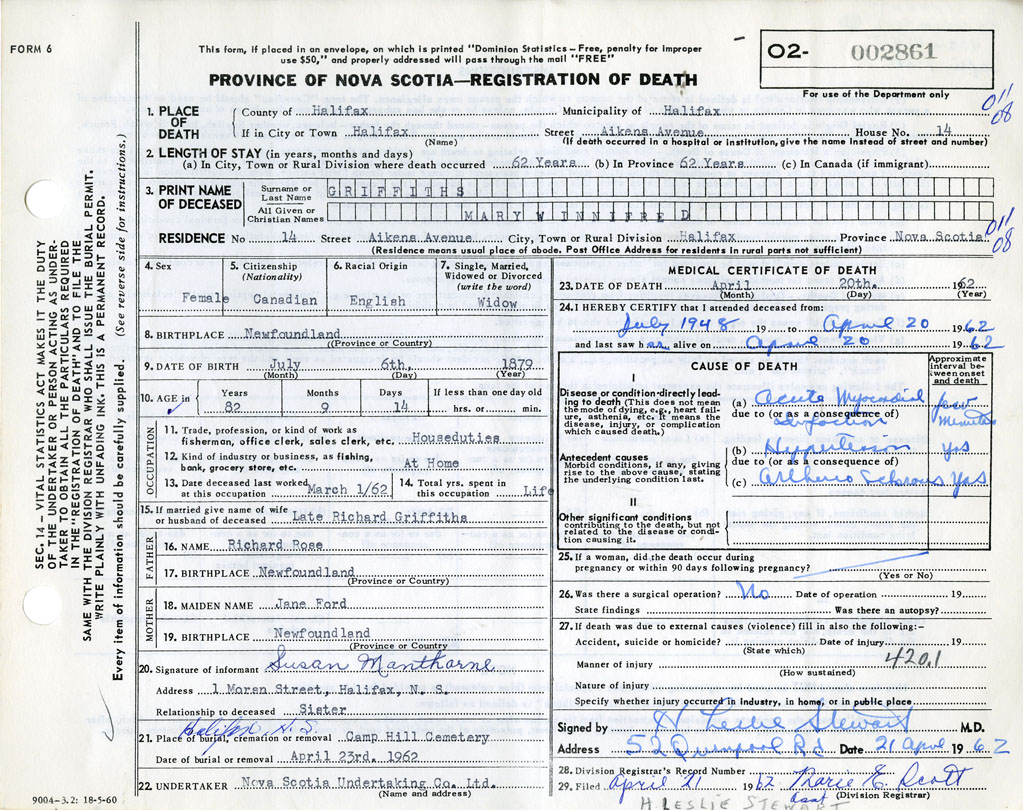 FORM 6
This form, if placed in an envelope, on which is printed "Dominion Statistics – Free, penalty for improper
use $50," and properly addressed will pass through the mail "FREE"
PROVINCE OF NOVA SCOTIA—REGISTRATION OF DEATH
O2- 002861
For use of the Department only
011
08
1. PLACE OF DEATH
County of Halifax Municipality of Halifax
If in City or Town Halifax Street Aikens Avenue House No. 14
(Name) (If death occurred in a hospital or institution, give the name instead of street and number)
2. LENGTH OF STAY (in years, months and days)
(a) In City, Town or Rural Division where death occurred 62 Years (b) In Province 62 Years (c) In Canada (if immigrant)
3. PRINT NAME OF DECEASED
Surname or Last Name GRIFFITHS
All Given or Christian Names MARY WINNIFRED
011
08
RESIDENCE No 14 Street Aikens Avenue City, Town or Rural Division Halifax Province Nova Scotia
(Residence means usual place of abode. Post Office Address for residents in rural parts not sufficient)
4. Sex Female
5. Citizenship (Nationality) Canadian
6. Racial Origin English
7. Single, Married, Widowed or Divorced (write the word) Widow
8. BIRTHPLACE Newfoundland
(Province or Country)
9. DATE OF BIRTH July 6th, 1879
(Month) (Day) (Year)
10. AGE in Years 82 Months 9 Days 14 If less than one day old hrs. or min.
OCCUPATION
11. Trade, profession, or kind of work as
fisherman, office clerk, sales clerk, etc. Houseduties
12. Kind of industry or business, as fishing,
bank, grocery store, etc. At Home
13. Date deceased last worked at this occupation March 1/62
14. Total yrs. spent in this occupation Life
15. If married give name of wife
or husband of deceased Late Richard Griffiths
FATHER
16. NAME Richard Rose
17. BIRTHPLACE Newfoundland
(Province or Country)
MOTHER
18. MAIDEN NAME Jane Ford
19. BIRTHPLACE Newfoundland
(Province or Country
20. Signature of informant Susan Manthorne
Address 1 Moran Street, Halifax, N. S.
Relationship to deceased Sister
Halifax N.S.
21. Place of burial, cremation or removal Camp Hill Cemetery
Date of burial or removal April 23rd. 1962
22. UNDERTAKER Nova Scotia Undertaking Co. Ltd.
(Name and address)
9004-3.2: 18-5-60
MEDICAL CERTIFICATE OF DEATH
23. DATE OF DEATH April. 20th. 1962
(Month) (Day) (Year)
24. I HEREBY CERTIFY that I attended deceased from:
July 1948 19 to April 20 1962
and last saw her alive on April 20 1962
CAUSE OF DEATH
Approximate interval between onset and death
I
Disease or condition directly leading to death (This does not mean the mode of dying, e.g., heart failure, asthenia, etc. It means the disease, injury, or complication which caused death.)
(a) Acute Myocardial few
due to (or as a consequence of) Infarction minutes
Antecedent causes
Morbid conditions, if any, giving rise to the above cause, stating the underlying condition last.
(b) Hypertension yrs
due to (or as a consequence of)
(c) Arterio Sclerosis yrs
II
Other significant conditions
contributing to the death, but not related to the disease or condition causing it.
25. If a woman, did the death occur during
pregnancy or within 90 days following pregnancy?
(Yes or No)
26. Was there a surgical operation? No Date of operation 19
State findings Was there an autopsy?
27. If death was due to external causes (violence) fill in also the following:—
Accident, suicide or homicide? Date of injury 19
(State which)
Manner of injury 420.1
(How sustained)
Nature of injury
Specify whether injury occurred in industry, in home, or in public place
Signed by H Leslie Stewart M.D.
Address 52 Quinpool Rd Date 21 April 1962
28. Division Registrar's Record Number
29. Filed April 21 1962 Marie E. Scott
(Division Registrar)
H. LESLIE STEWART
SEC. 14 – VITAL STATISTICS ACT MAKES IT THE DUTY
OF THE UNDERTAKER OR PERSON ACTING AS UNDER-
TAKER TO OBTAIN ALL THE PARTICULARS REQUIRED
IN THE "REGISTRATION OF DEATH" AND TO FILE THE
SAME WITH THE DIVISION REGISTRAR WHO SHALL ISSUE THE BURIAL PERMIT.
WRITE PLAINLY WITH UNFADING INK. THIS IS A PERMANENT RECORD.
Every item of information should be carefully supplied. (See reverse side for instructions.)